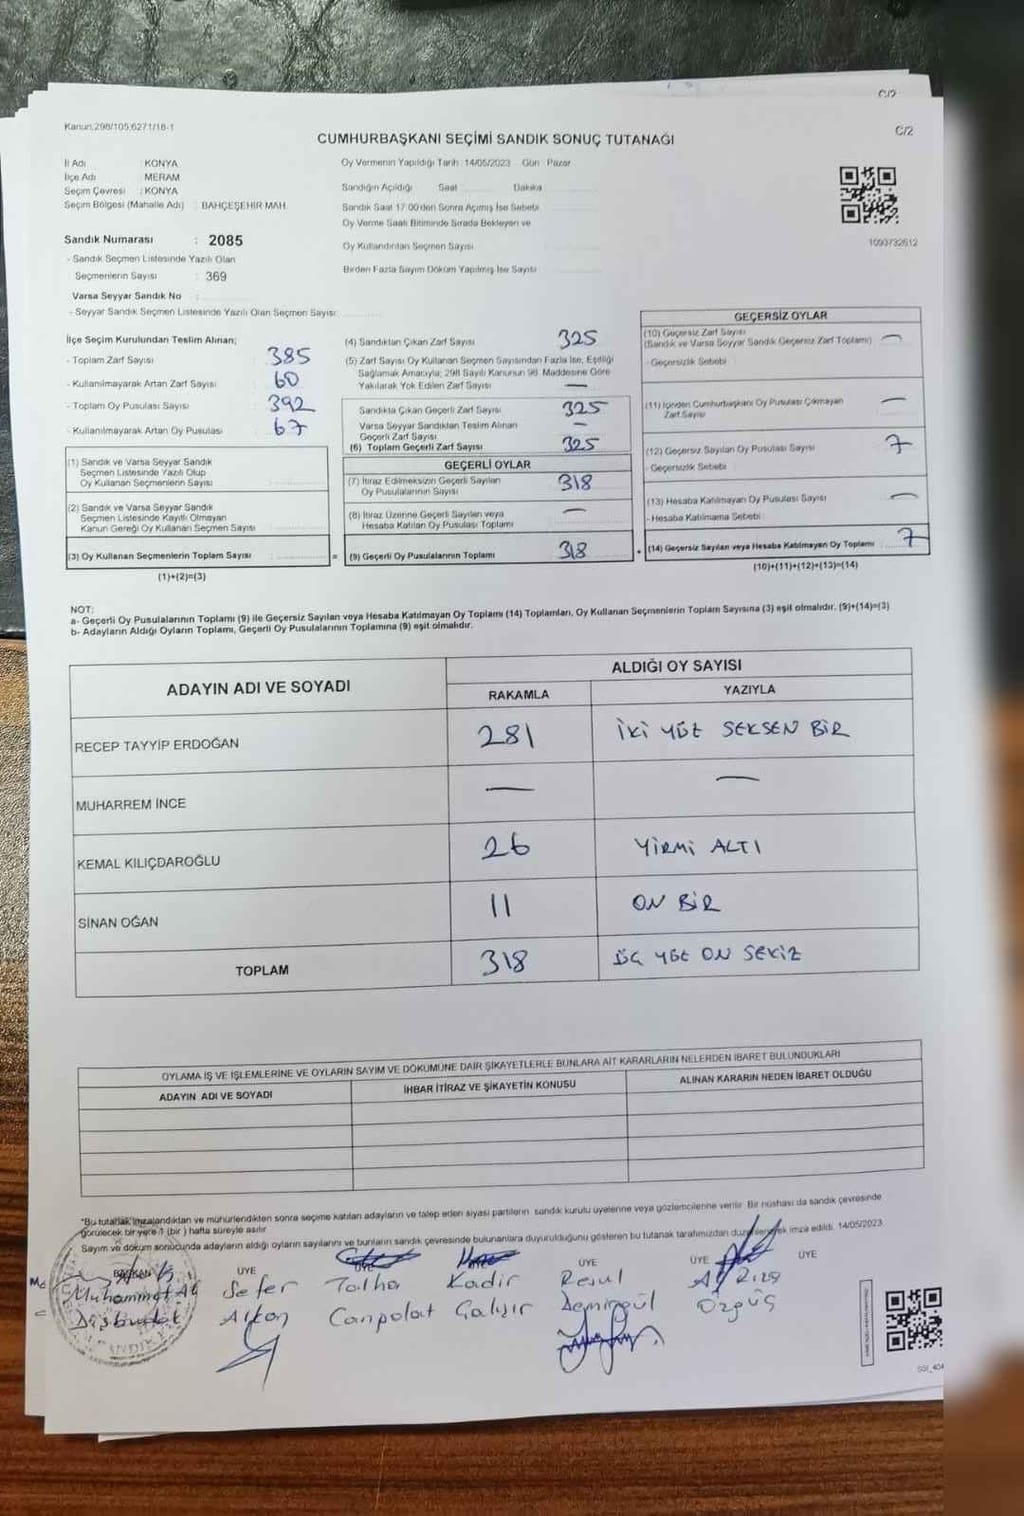 C/2
Kanun,298/105,6271/18-1
C/2
CUMHURBAŞKANI SEÇİMİ SANDIK SONUÇ TUTANAĞI
İl Adı : KONYA
İlçe Adı : MERAM
Seçim Çevresi : KONYA
Seçim Bölgesi (Mahalle Adı) : BAHÇEŞEHİR MAH.
Sandık Numarası : 2085
- Sandık Seçmen Listesinde Yazılı Olan
Seçmenlerin Sayısı : 369
Varsa Seyyar Sandık No :
- Seyyar Sandık Seçmen Listesinde Yazılı Olan Seçmen Sayısı:
Oy Vermenin Yapıldığı Tarih :14/05/2023 Gün : Pazar
Sandığın Açıldığı Saat Dakika
Sandık Saat 17:00'den Sonra Açımış İse Sebebi
Oy Verme Saati Bitiminde Sırada Bekleyen ve
Oy Kullandırılan Seçmen Sayısı
Birden Fazla Sayım Döküm Yapılmış İse Sayısı
1093732612
İlçe Seçim Kurulundan Teslim Alınan;
- Toplam Zarf Sayısı : 385
- Kullanılmayarak Artan Zarf Sayısı : 60
- Toplam Oy Pusulası Sayısı : 392
- Kullanılmayarak Artan Oy Pusulası : 67
(1) Sandık ve Varsa Seyyar Sandık
Seçmen Listesinde Yazılı Olup
Oy Kullanan Seçmenlerin Sayısı
(2) Sandık ve Varsa Seyyar Sandık
Seçmen Listesinde Kayıtlı Olmayan
Kanun Gereği Oy Kullanan Seçmen Sayısı
(3) Oy Kullanan Seçmenlerin Toplam Sayısı
(1)+(2)=(3)
(4) Sandıktan Çıkan Zarf Sayısı 325
(5) Zarf Sayısı Oy Kullanan Seçmen Sayısından Fazla İse, Eşitliği
Sağlamak Amacıyla; 298 Sayılı Kanunun 98. Maddesine Göre
Yakılarak Yok Edilen Zarf Sayısı —
Sandıkta Çıkan Geçerli Zarf Sayısı 325
Varsa Seyyar Sandıktan Teslim Alınan
Geçerli Zarf Sayısı —
(6) Toplam Geçerli Zarf Sayısı 325
GEÇERLİ OYLAR
(7) İtiraz Edilmeksizin Geçerli Sayılan
Oy Pusulalarının Sayısı 318
(8) İtiraz Üzerine Geçerli Sayılan veya
Hesaba Katılan Oy Pusulası Toplamı —
= (9) Geçerli Oy Pusulalarının Toplamı 318
GEÇERSİZ OYLAR
(10) Geçersiz Zarf Sayısı
(Sandık ve Varsa Seyyar Sandık Geçersiz Zarf Toplamı) —
- Geçersizlik Sebebi :
(11) İçinden Cumhurbaşkanı Oy Pusulası Çıkmayan
Zarf Sayısı —
(12) Geçersiz Sayılan Oy Pusulası Sayısı 7
- Geçersizlik Sebebi :
(13) Hesaba Katılmayan Oy Pusulası Sayısı —
- Hesaba Katılmama Sebebi :
+ (14) Geçersiz Sayılan veya Hesaba Katılmayan Oy Toplamı 7
(10)+(11)+(12)+(13)=(14)
NOT:
a- Geçerli Oy Pusulalarının Toplamı (9) ile Geçersiz Sayılan veya Hesaba Katılmayan Oy Toplamı (14) Toplamları, Oy Kullanan Seçmenlerin Toplam Sayısına (3) eşit olmalıdır. (9)+(14)=(3)
b- Adayların Aldığı Oyların Toplamı, Geçerli Oy Pusulalarının Toplamına (9) eşit olmalıdır.
ADAYIN ADI VE SOYADI
ALDIĞI OY SAYISI
RAKAMLA YAZIYLA
RECEP TAYYİP ERDOĞAN 281 İKİ YÜZ SEKSEN BİR
MUHARREM İNCE — —
KEMAL KILIÇDAROĞLU 26 YİRMİ ALTI
SİNAN OĞAN 11 ON BİR
TOPLAM 318 ÜÇ YÜZ ON SEKİZ
OYLAMA İŞ VE İŞLEMLERİNE VE OYLARIN SAYIM VE DÖKÜMÜNE DAİR ŞİKAYETLERLE BUNLARA AİT KARARLARIN NELERDEN İBARET BULUNDUKLARI
ADAYIN ADI VE SOYADI İHBAR İTİRAZ VE ŞİKAYETİN KONUSU ALINAN KARARIN NEDEN İBARET OLDUĞU
*Bu tutanak imzalandıktan ve mühürlendikten sonra seçime katılan adayların ve talep eden siyasi partilerin sandık kurulu üyelerine veya gözlemcilerine verilir. Bir nüshası da sandık çevresinde
görülecek bir yere 1 (bir) hafta süreyle asılır.
Sayım ve döküm sonucunda adayların aldığı oyların sayılarını ve bunların sandık çevresinde bulunanlara duyurulduğunu gösteren bu tutanak tarafımızdan düzenlenerek imza edildi. 14/05/2023
BAŞKAN ÜYE ÜYE ÜYE ÜYE ÜYE
Muhammet Ali Sefer Talha Kadir Resul Ali Rıza
Altan Canpolat Çalışır Demirgül Özgüş